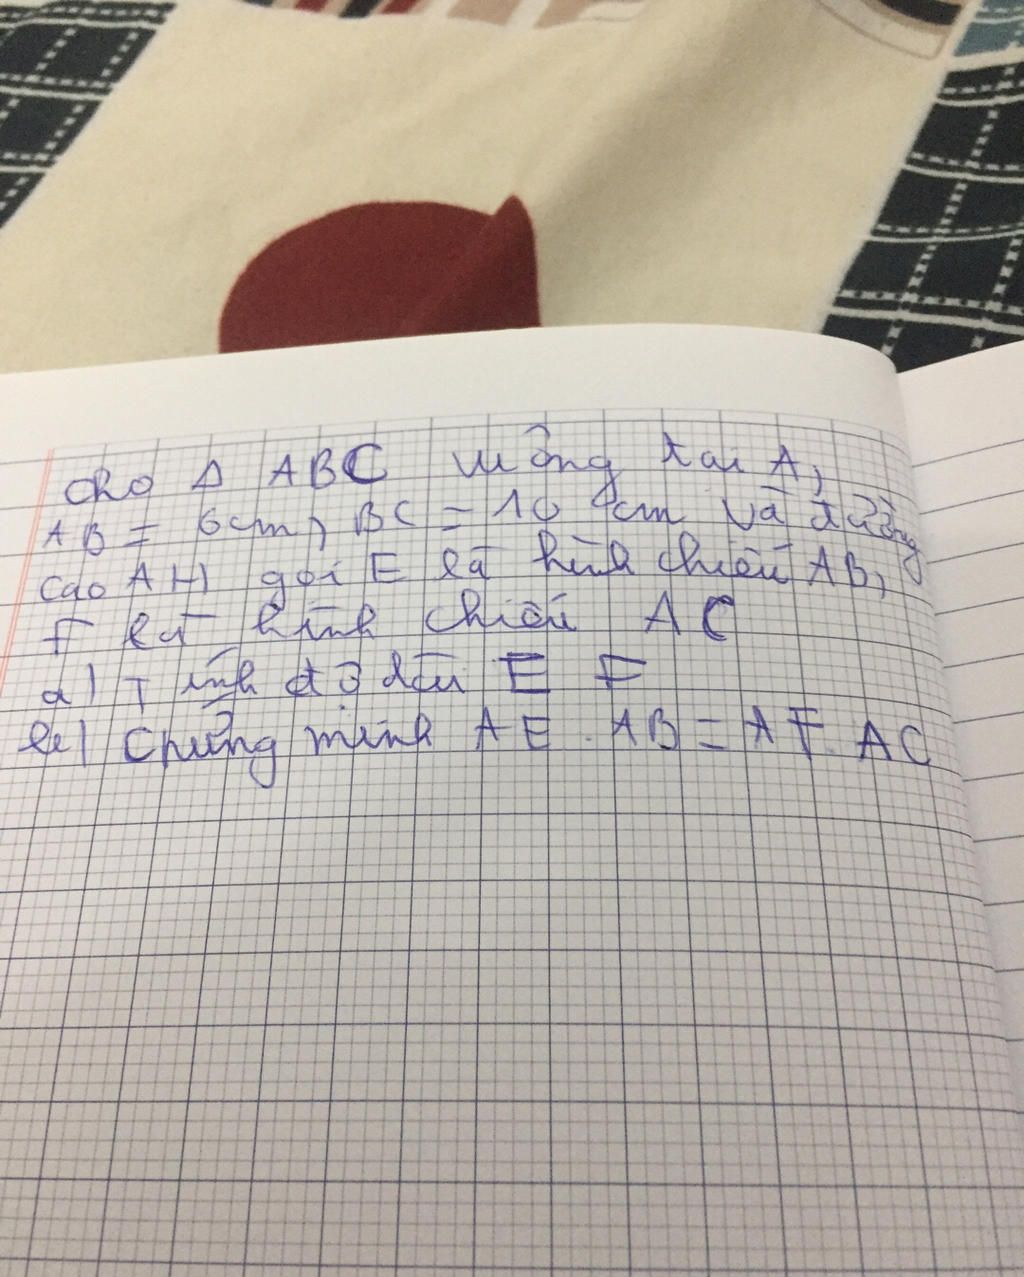 cho Δ ABC vuông tại A,
AB = 6cm, BC = 10 cm và đường
cao AH gọi E là hình chiếu AB,
F là hình chiếu AC
a) Tính độ dài EF
b) Chứng minh AE . AB = AF. AC